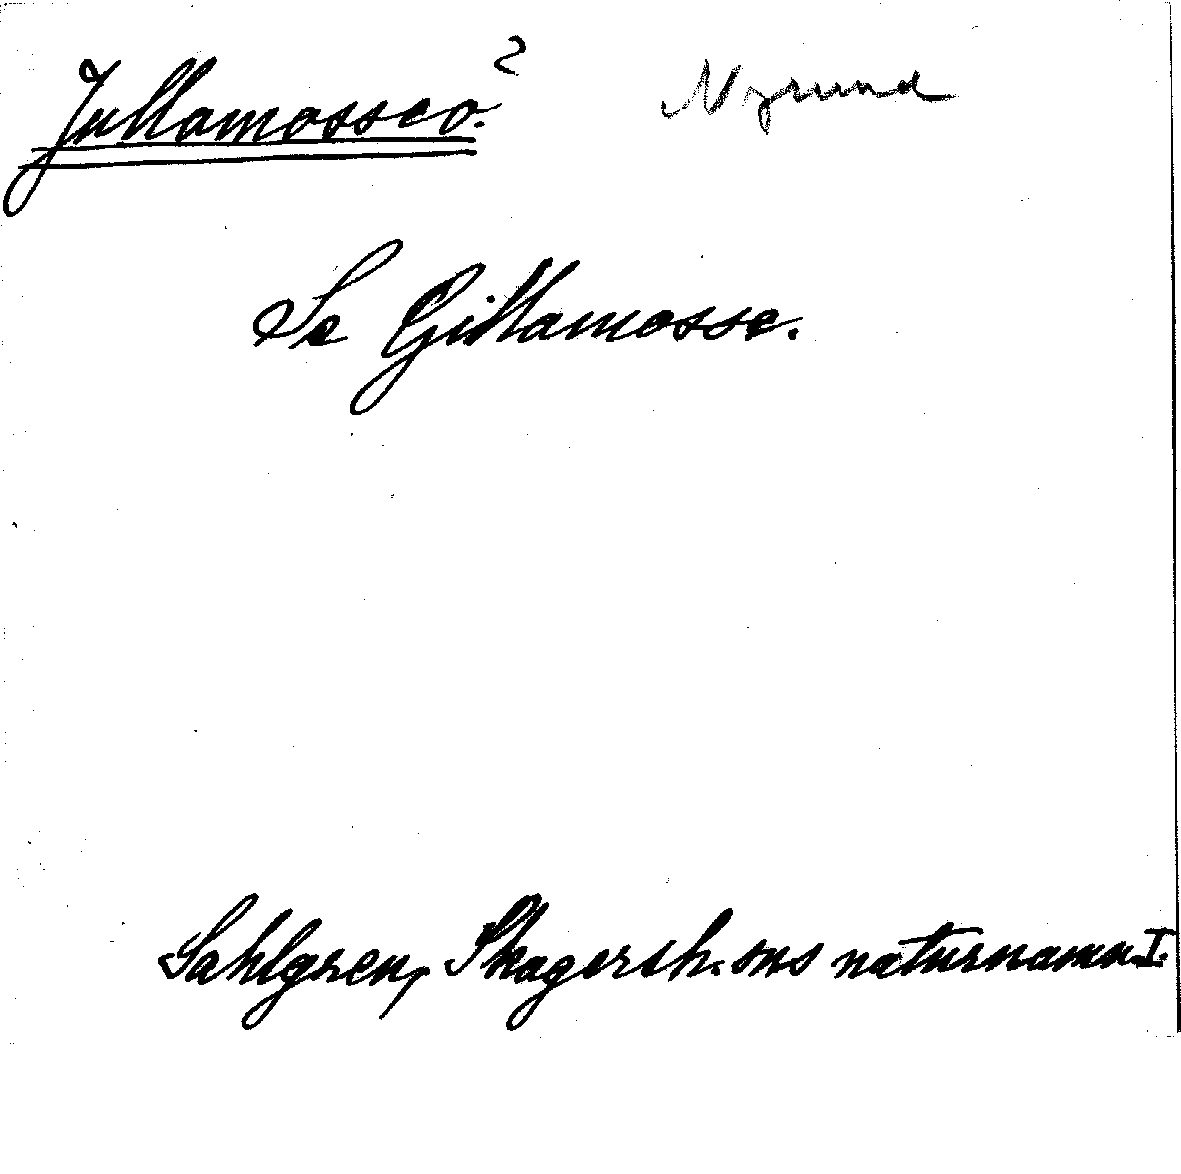 Jullamossen. 2 Nysund
Se Gillamosse.
Sahlgren, Skagersh:sns naturnamn I.